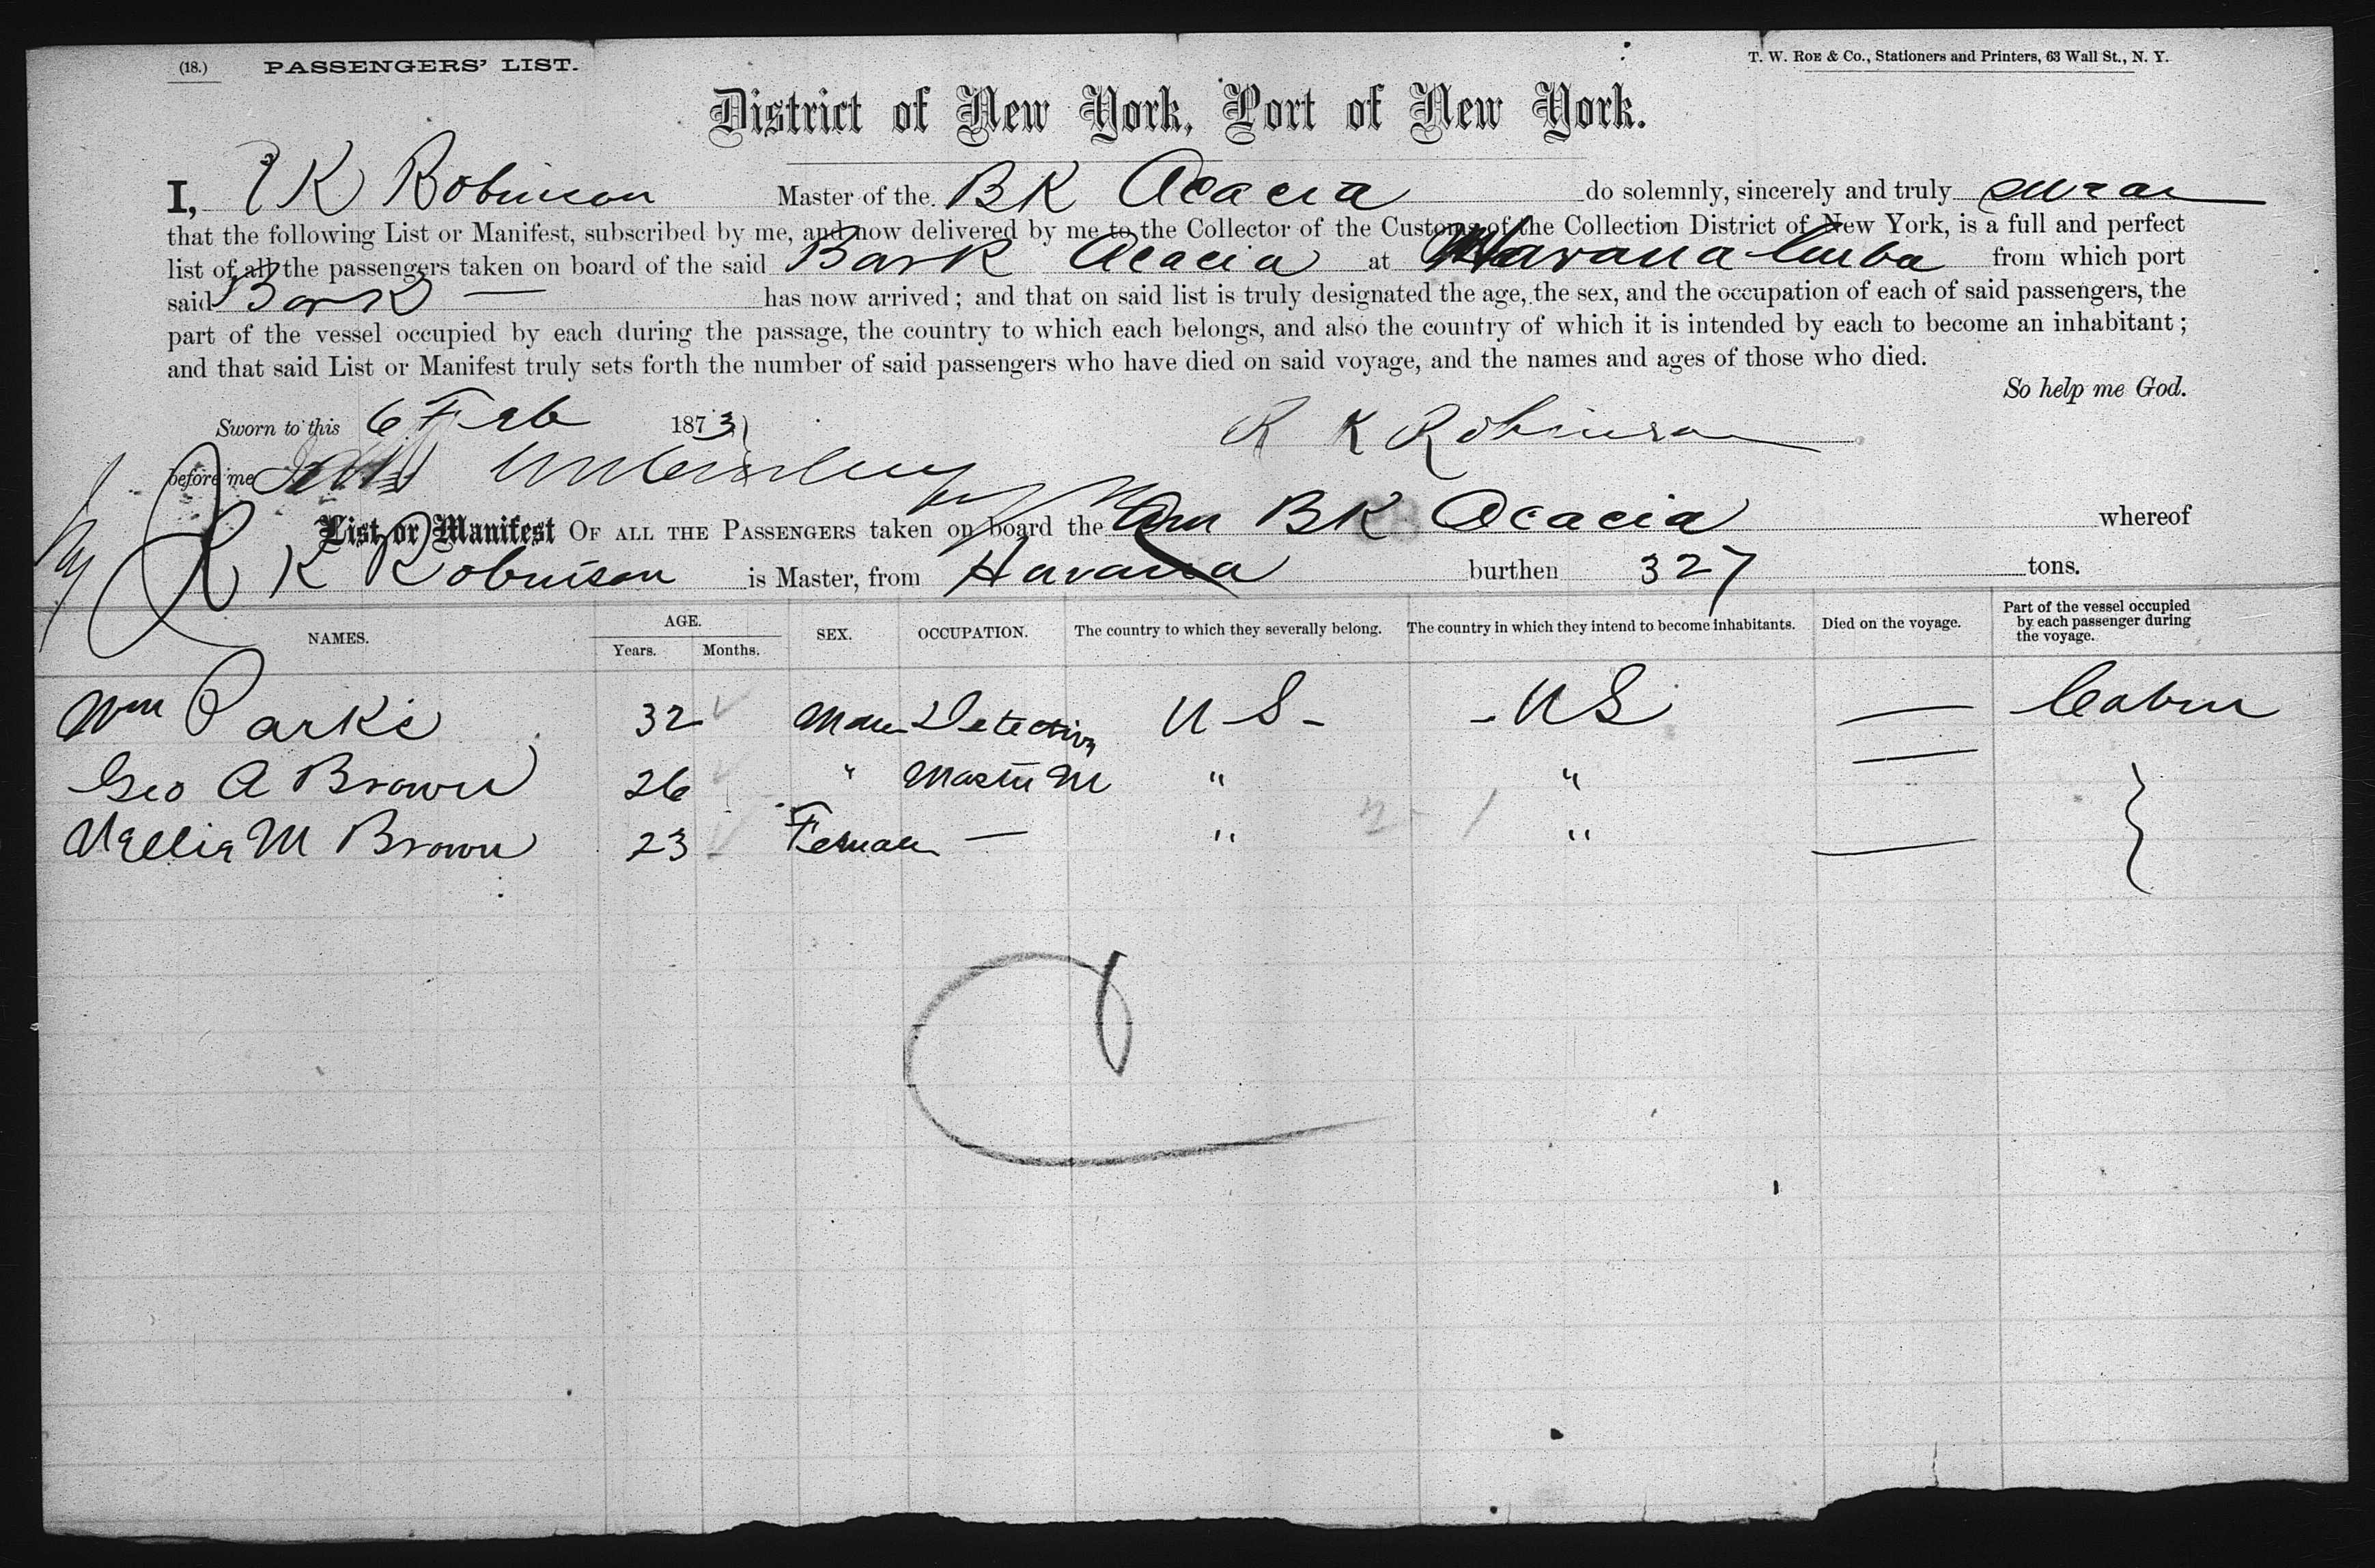 (18.) PASSENGERS' LIST.
T. W. ROE & Co., Stationers and Printers, 63 Wall St., N. Y.
District of New York, Port of New York.
I, R K Robinson Master of the BK Acacia do solemnly, sincerely and truly swear
that the following List or Manifest, subscribed by me, and now delivered by me to the Collector of the Customs of the Collection District of New York, is a full and perfect
list of all the passengers taken on board of the said Bark Acacia at Havana Cuba from which port
said Bark — has now arrived; and that on said list is truly designated the age, the sex, and the occupation of each of said passengers, the
part of the vessel occupied by each during the passage, the country to which each belongs, and also the country of which it is intended by each to become an inhabitant;
and that said List or Manifest truly sets forth the number of said passengers who have died on said voyage, and the names and ages of those who died.
So help me God.
Sworn to this 6 Feb 1873
R K Robinson
before me
List or Manifest OF ALL THE PASSENGERS taken on board the Am BK Acacia whereof
R K Robinson is Master, from Havana burthen 327 tons.
NAMES. AGE. Years. Months. SEX. OCCUPATION. The country to which they severally belong. The country in which they intend to become inhabitants. Died on the voyage. Part of the vessel occupied by each passenger during the voyage.
Wm Parke 32 Male Detective U S - - U S — Cabin
Geo A Brown 26 " Master M " " — }
Nellie M Brown 23 Female — " " —